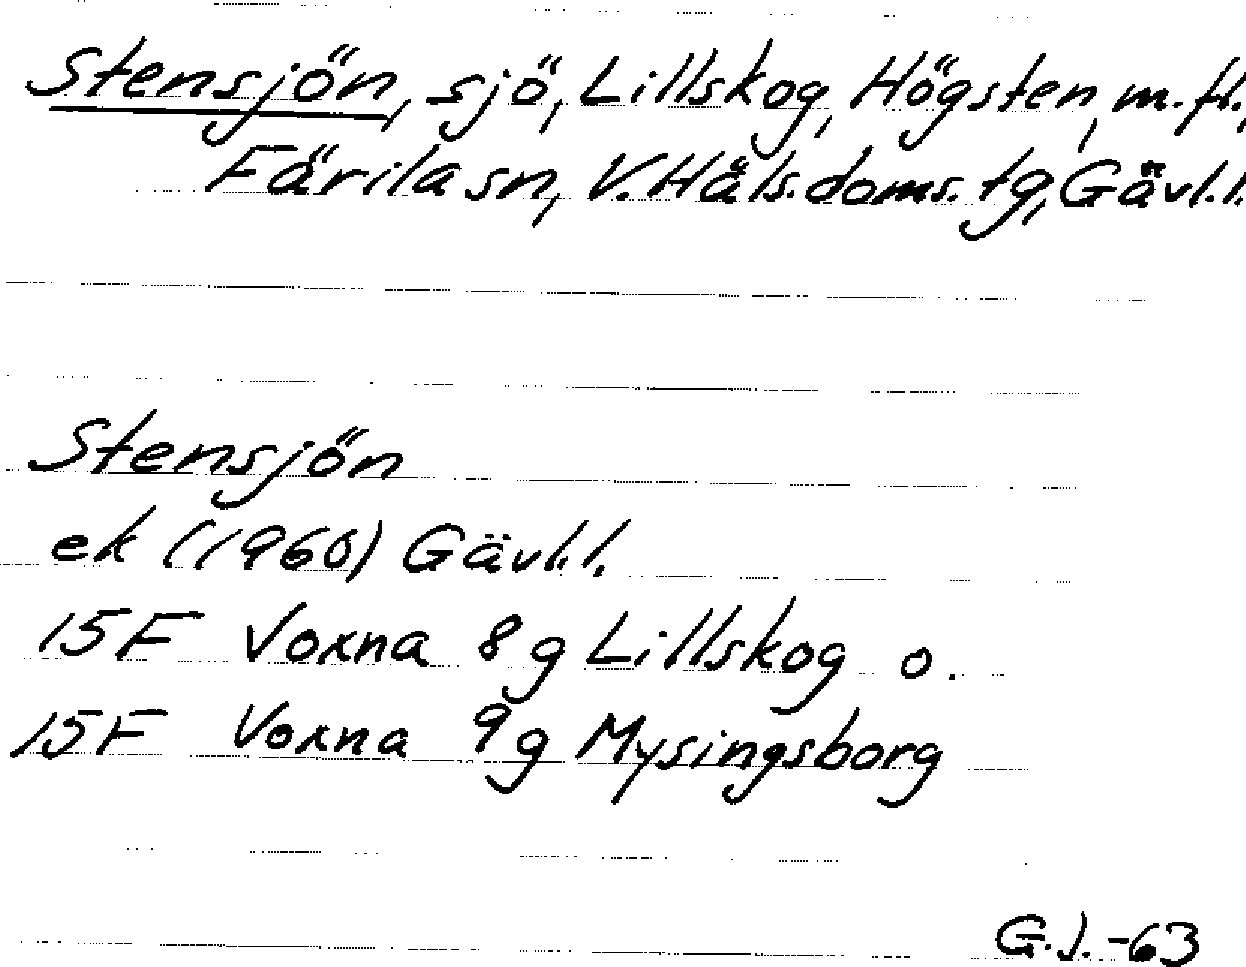 Stensjön, sjö, Lillskog, Högsten, m.fl.,
Färila sn, V. Häls. doms. tg, Gävl.l.
Stensjön
ek (1960) Gävl.l.
15F Voxna 8g Lillskog o.
15F Voxna 9g Mysingsborg
G.J.-63